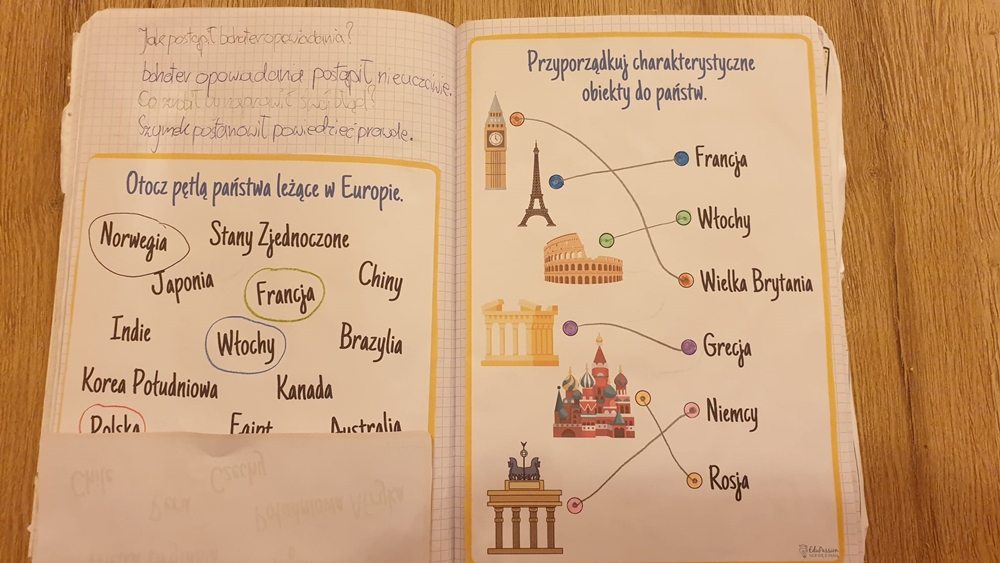 Jak postąpił bohater opowiadania?
bohater opowiadana postąpił nieuczciwie.
Co zrobił by naprawić swój błąd?
Szymek postanowił powiedzieć prawdę.
Otocz pętlą państwa leżące w Europie.
Norwegia Stany Zjednoczone
Japonia Francja Chiny
Indie Włochy Brazylia
Korea Południowa Kanada
Polska Egipt Australia
Chile Peru Czechy
Południowa Afryka
Przyporządkuj charakterystyczne
obiekty do państw.
Francja
Włochy
Wielka Brytania
Grecja
Niemcy
Rosja
EduPassion